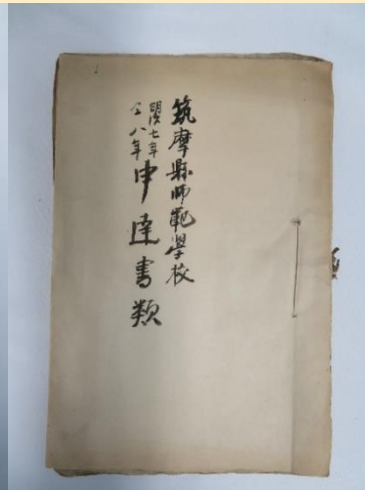 筑摩縣師範學校
明治七年
仝八年
申達書類